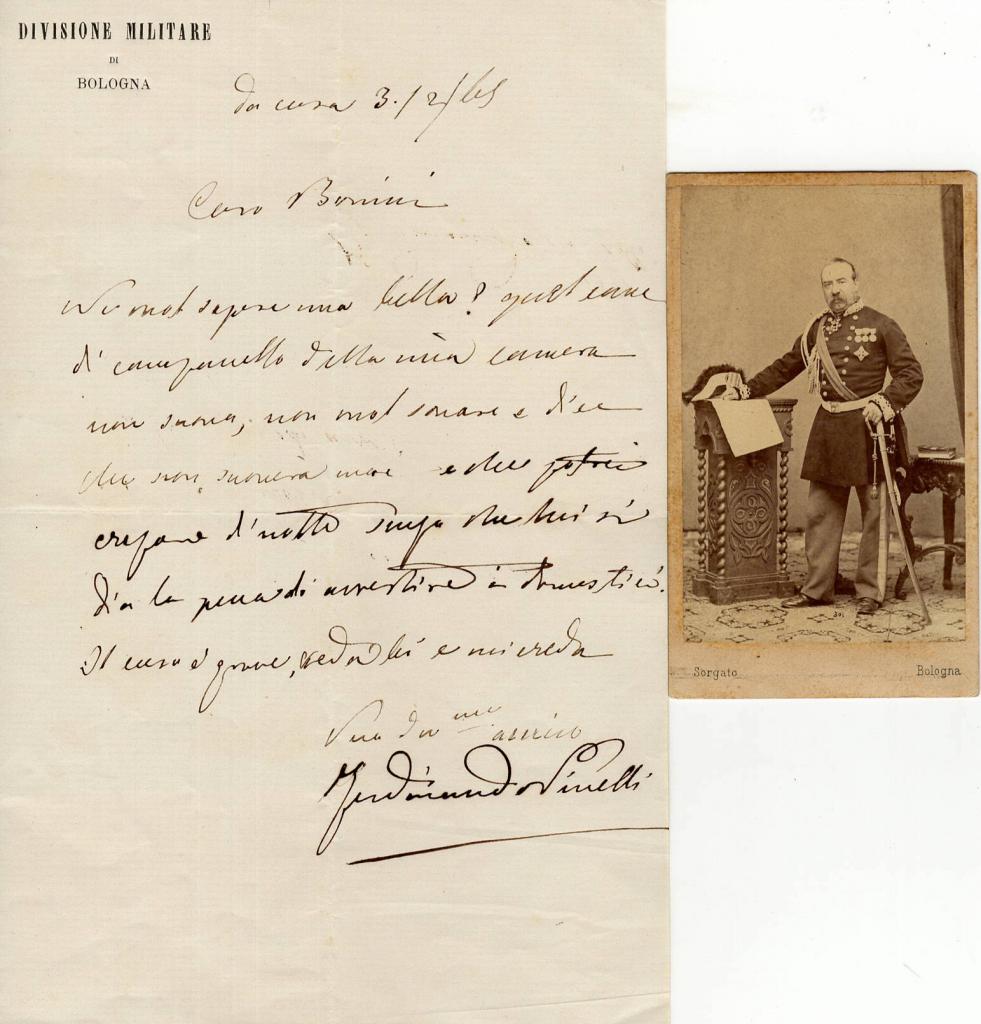 DIVISIONE MILITARE
DI
BOLOGNA
Da casa 3./2/65
Caro Bonini
Ne vuol sapere una bella? quel cane
di campanello della mia camera
non suona, non vuol sonare e dice
che non suonerà mai e che potrei
crepare di notte senza che lui si
dia la pena di avvertire i domestici.
Il caso è grave, veda lei e mi creda
Suo amico
Ferdinando Pinelli
301
Sorgato
Bologna